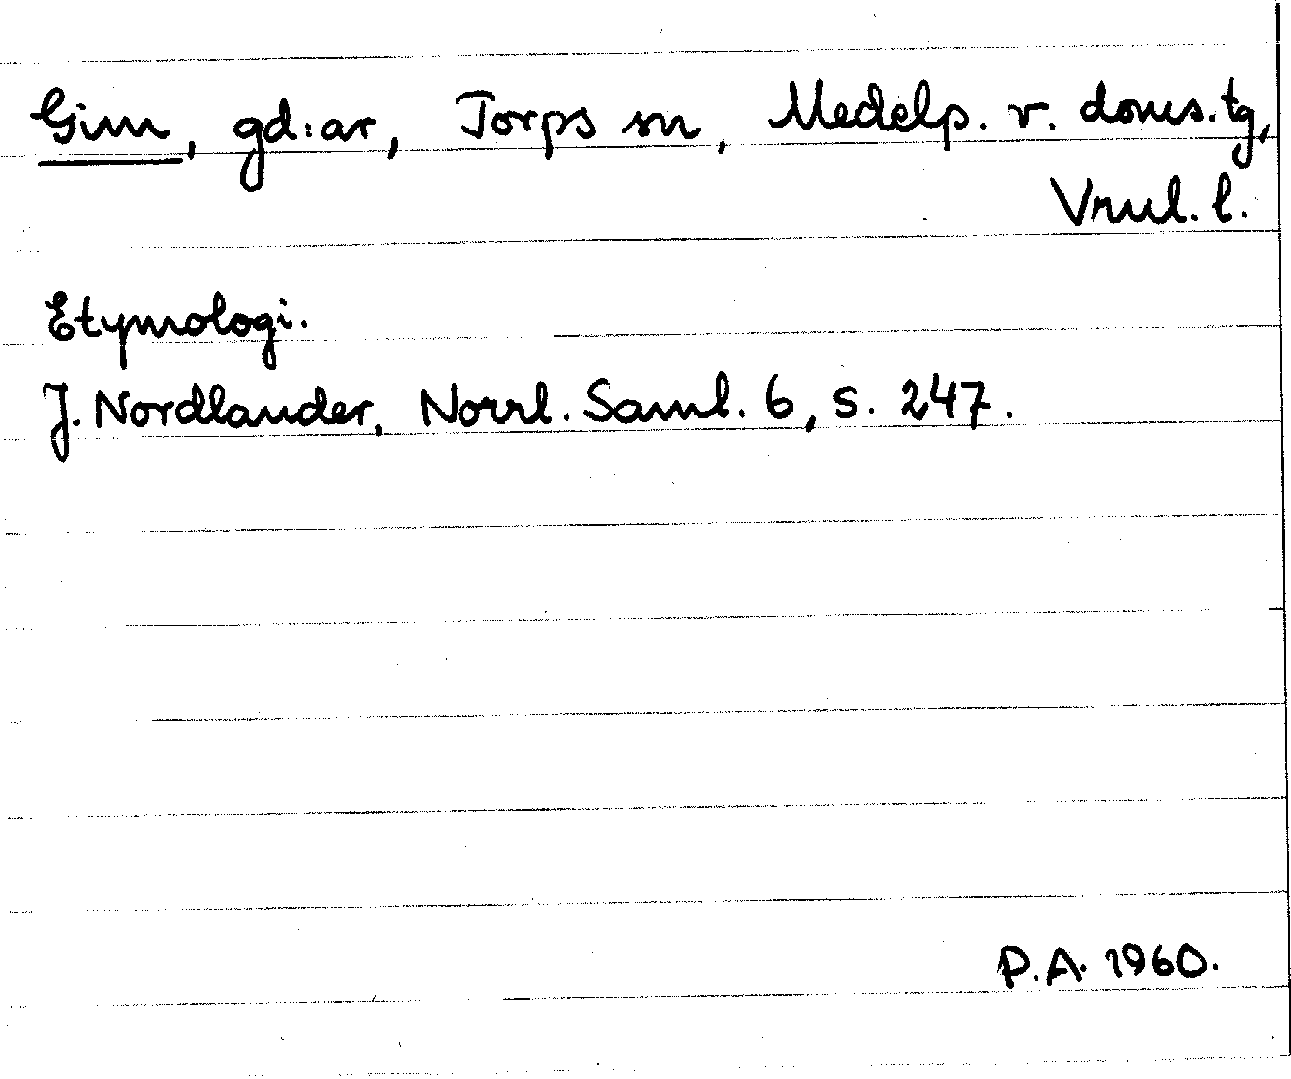 Gim, gd:ar, Torps sn, Medelp. v. doms.tg,
Vrnl. l.
Etymologi.
J. Nordlander, Norrl. Saml. 6, s. 247.
P.A. 1960.